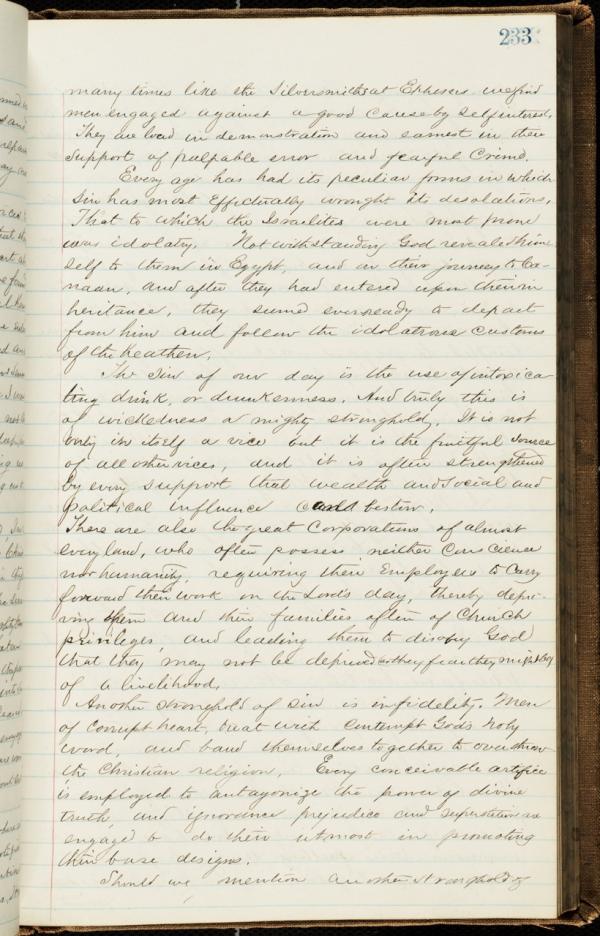 233
many times like the Silversmiths at Ephesus we find
men engaged against a good cause by self interest.
They are loud in demonstration and earnest in their
support of palpable error and fearful Crime.
Every age has had its peculiar forms in which
Sin has most Effectually wrought its desolations.
That to which the Israelites were most prone
was idolatry. Notwithstanding God revealed him
self to them in Egypt, and on their journey to Ca-
naan, and after they had entered upon their in
heritance, they seemed ever ready to depart
from him and follow the idolatrous customs
of the heathen.
The Sin of our day is the use of intoxica
ting drink, or drunkenness. And truly this is
of wickedness a mighty stronghold. It is not
only in itself a vice but it is the fruitful source
of all other vices, and it is often strengthened
by every support that wealth and social and
political influence can bestow.
There are also the great Corporations of almost
every land, who often possess neither Conscience
nor humanity, requiring their Employees to Carry
forward their work on the Lord's day, thereby depri-
ving them and their families often of Church
privileges, and leading them to disobey God
that they may not be deprived as they fear they might be
of a livelihood.
Another stronghold of sin is infidelity. Men
of corrupt heart, treat with contempt God's holy
word, and band themselves together to overthrow
the Christian religion. Every conceivable artifice
is employed to antagonize the power of divine
truth, and ignorance prejudice and superstition are
engaged to do their utmost in promoting
their base designs.
Should we mention another stronghold of